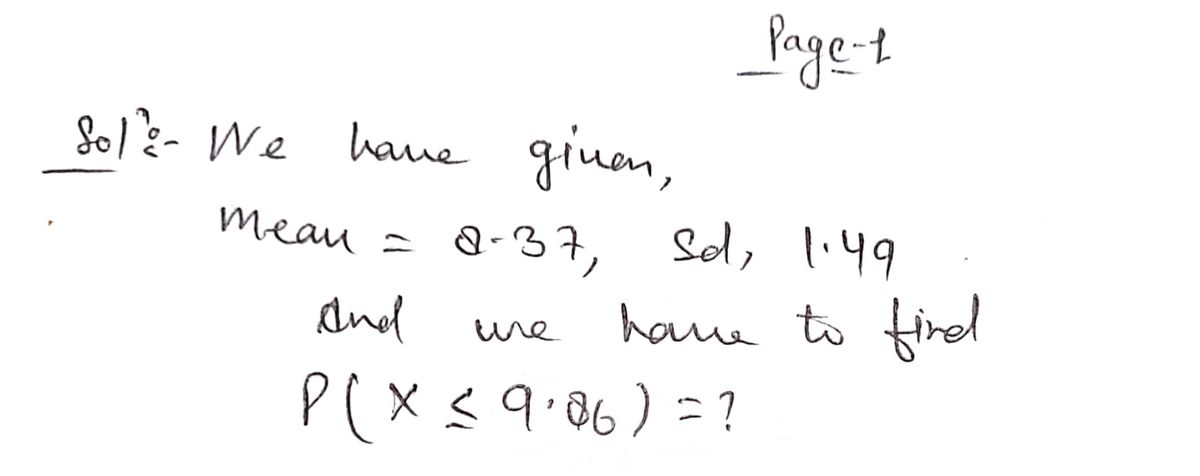 Page-1
Solⁿ:- We have given,
Mean = 8.37, Sd, 1.49
And we have to find
P(X ≤ 9.86) = ?